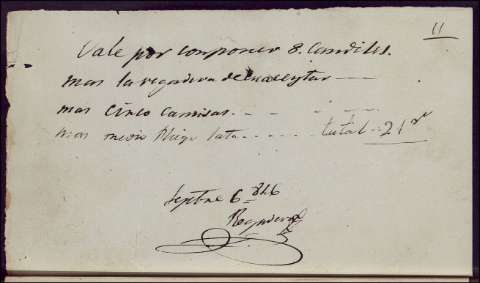 11
Vale por componer 8. Candiles.
mas la regadera de
mas Cinco Camisas. - - - - -
mas medio Lata. - - - - total - 21 r
Septbre 6 - 826